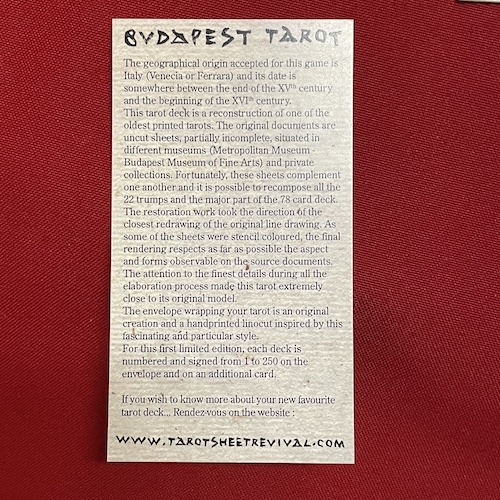 BUDAPEST TAROT
The geographical origin accepted for this game is
Italy (Venecia or Ferrara) and its date is
somewhere between the end of the XVth century
and the beginning of the XVIth century.
This tarot deck is a reconstruction of one of the
oldest printed tarots. The original documents are
uncut sheets, partially incomplete, situated in
different museums (Metropolitan Museum -
Budapest Museum of Fine Arts) and private
collections. Fortunately, these sheets complement
one another and it is possible to recompose all the
22 trumps and the major part of the 78 card deck.
The restoration work took the direction of the
closest redrawing of the original line drawing. As
some of the sheets were stencil coloured, the final
rendering respects as far as possible the aspect
and forms observable on the source documents.
The attention to the finest details during all the
elaboration process made this tarot extremely
close to its original model.
The envelope wrapping your tarot is an original
creation and a handprinted linocut inspired by this
fascinating and particular style.
For this first limited edition, each deck is
numbered and signed from 1 to 250 on the
envelope and on an additional card.
If you wish to know more about your new favourite
tarot deck... Rendez-vous on the website :
WWW.TAROTSHEETREVIVAL.COM